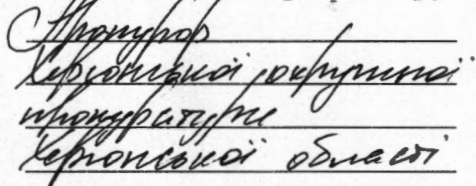 Прокурор
Херсонської окружної
прокуратури
Херсонської області